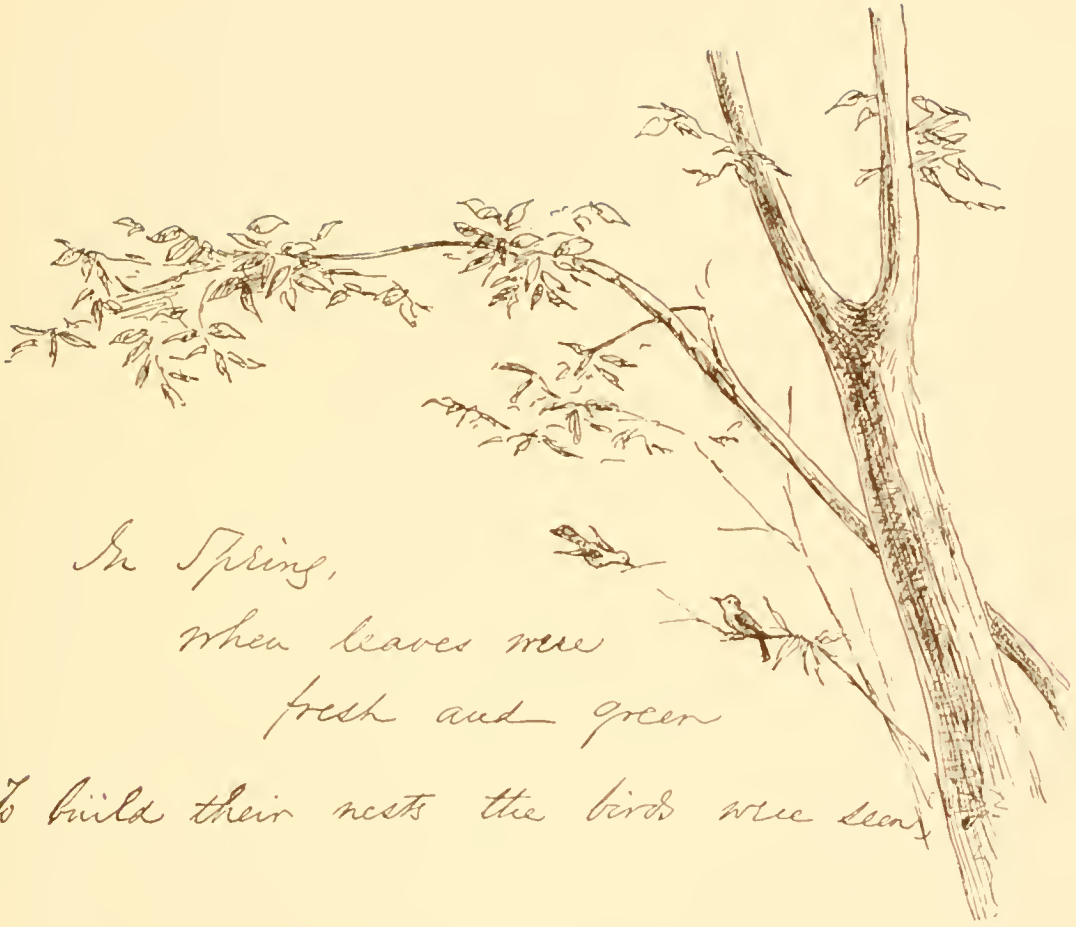 In Spring,
when leaves were
fresh and green
To build their nests the birds were seen,